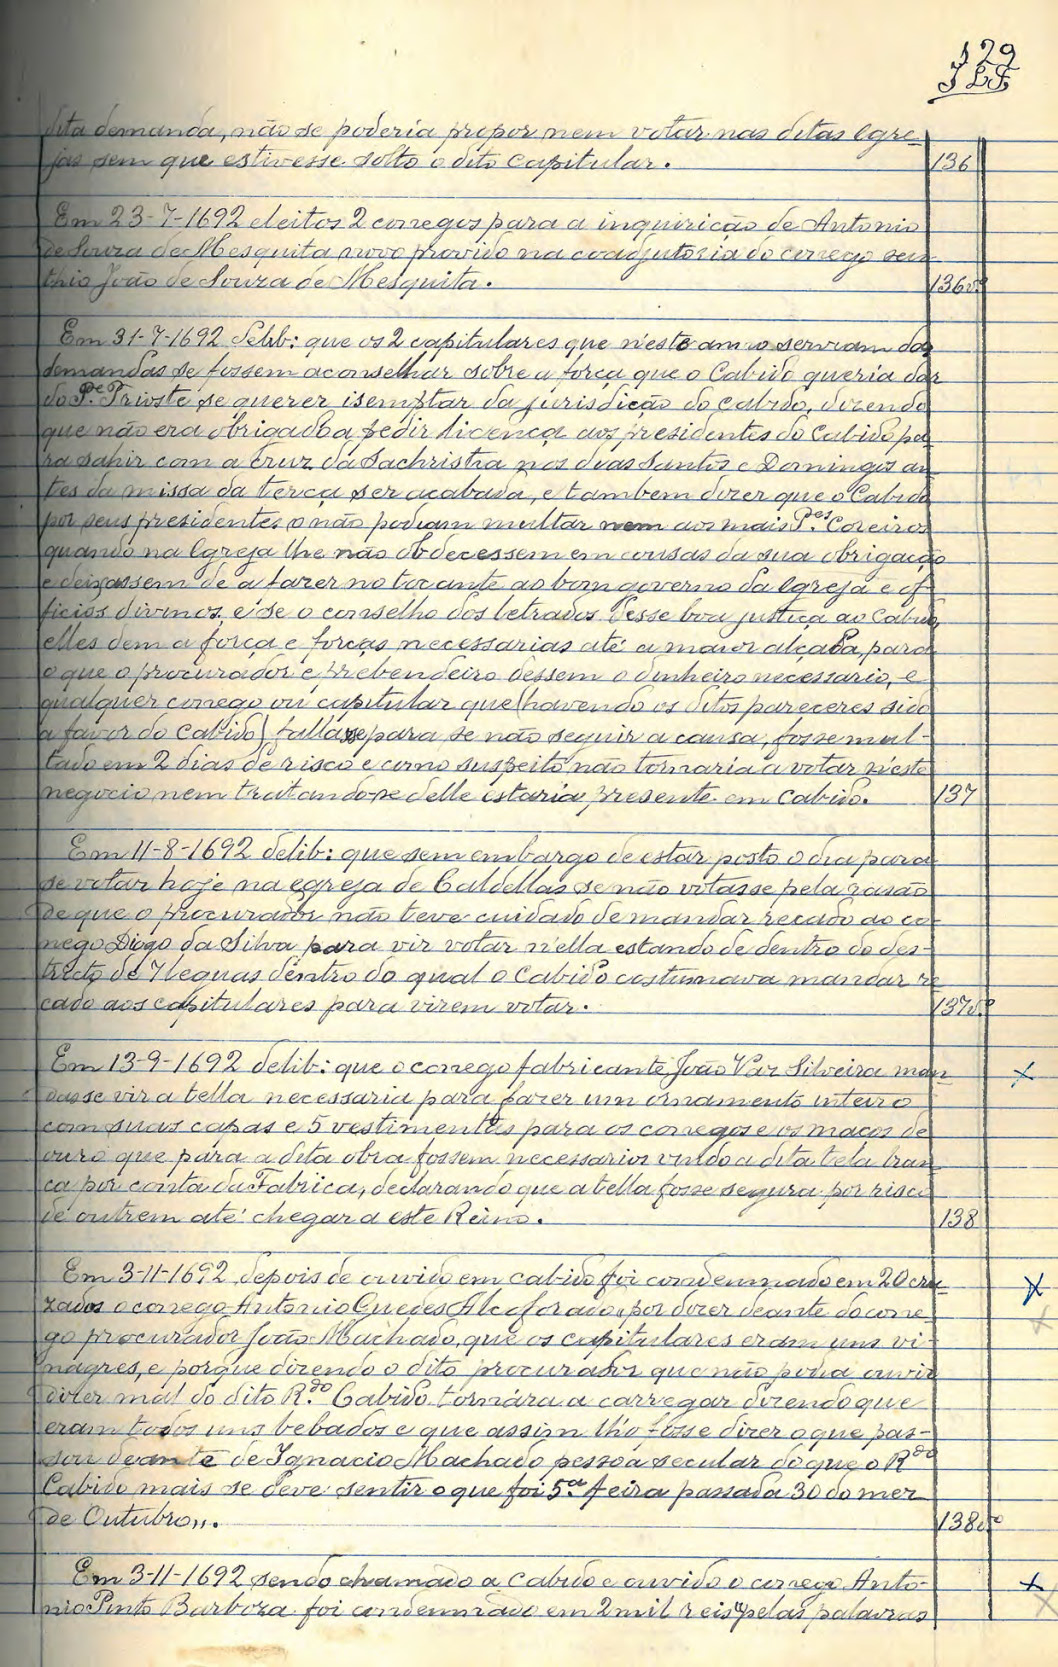 129
JLF
dita demanda, não se poderia propor nem votar nas ditas Egre-
jas sem que estivesse solto o dito capitular. 136
Em 23-7-1692 eleitos 2 conegos para a inquirição de Antonio
de Souza de Mesquita novo provido na coadjutoria do conego seu
thio João de Souza de Mesquita. 136v.º
Em 31-7-1692 delib: que os 2 capitulares que n'este anno serviam das
demandas se fossem aconselhar sobre a força que o Cabido queria dar
do P.e Trioste se querer isemptar da jurisdição do Cabido, dizendo
que não era obrigado a pedir licença aos presidentes do Cabido pa-
ra sahir com a Cruz da Sachristia nos dias Santos e Domingos an-
tes da missa da terça ser acabada, e tambem dizer que o Cabido
por seus presidentes o não podiam multar nem aos mais P.es Coreiros
quando na Egreja lhe não obdecessem em cousas da sua obrigação
e deixassem de a fazer no tocante ao bom governo da Egreja e of-
ficios divinos, e se o conselho dos letrados desse boa justiça ao Cabido,
elles dem a força e forças necessarias até a maior alçada, para
o que o procurador e prebendeiro dessem o dinheiro necessario, e
qualquer conego ou capitular que (havendo os ditos pareceres sido
a favor do Cabido) fallasse para se não seguir a causa, fosse mul-
tado em 2 dias de risco e como suspeito não tornaria a votar n'este
negocio nem tratando-se delle estaria presente em Cabido. 137
Em 11-8-1692 delib: que sem embargo de estar posto o dia para
se votar hoje na egreja de Caldellas se não votasse pela rasão
de que o procurador não teve cuidado de mandar recado ao co-
nego Diogo da Silva para vir votar n'ella estando de dentro do des-
tricto de 7 leguas dentro do qual o Cabido costumava mandar re-
cado aos capitulares para virem votar. 137v.º
Em 13-9-1692 delib: que o conego fabricante João Vaz Silveira man- x
dasse vir a tella necessaria para fazer um ornamento inteiro
com suas capas e 5 vestimentas para os conegos e os maços de
ouro que para a dita obra fossem necessarios vindo a dita tela bran-
ca por conta da Fabrica, declarando que a tella fosse segura por risco
de outrem até chegar a este Reino. 138
Em 3-11-1692 depois de ouvido em cabido foi condemnado em 20 cru- x
zados o conego Antonio Guedes Alcoforado "por dizer deante do cone- x
go procurador João Machado, que os capitulares eram uns vi-
nagres, e porque dizendo o dito procurador que não podia ouvir
dizer mal do dito R.do Cabido tornára a carregar dizendo que
eram todos uns bebados e que assim lh'o fosse dizer o que pas-
sou deante de Ignacio Machado pessoa secular do que o R.do
Cabido mais se deve sentir o que foi 5.ª feira passada 30 do mez
de Outubro". 138v.º
Em 3-11-1692 sendo chamado a Cabido e ouvido o conego Anto- x
nio Pinto Barboza foi condemnado em 2 mil reis "pelas palavras x